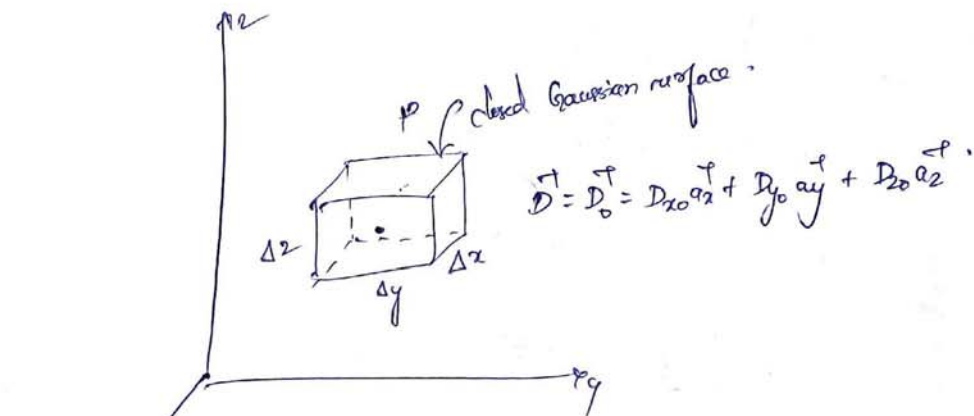 z
P
closed Gaussian surface.
D⃗ = D⃗₀ = Dx₀ a⃗x + Dy₀ a⃗y + Dz₀ a⃗z.
Δz
Δx
Δy
y